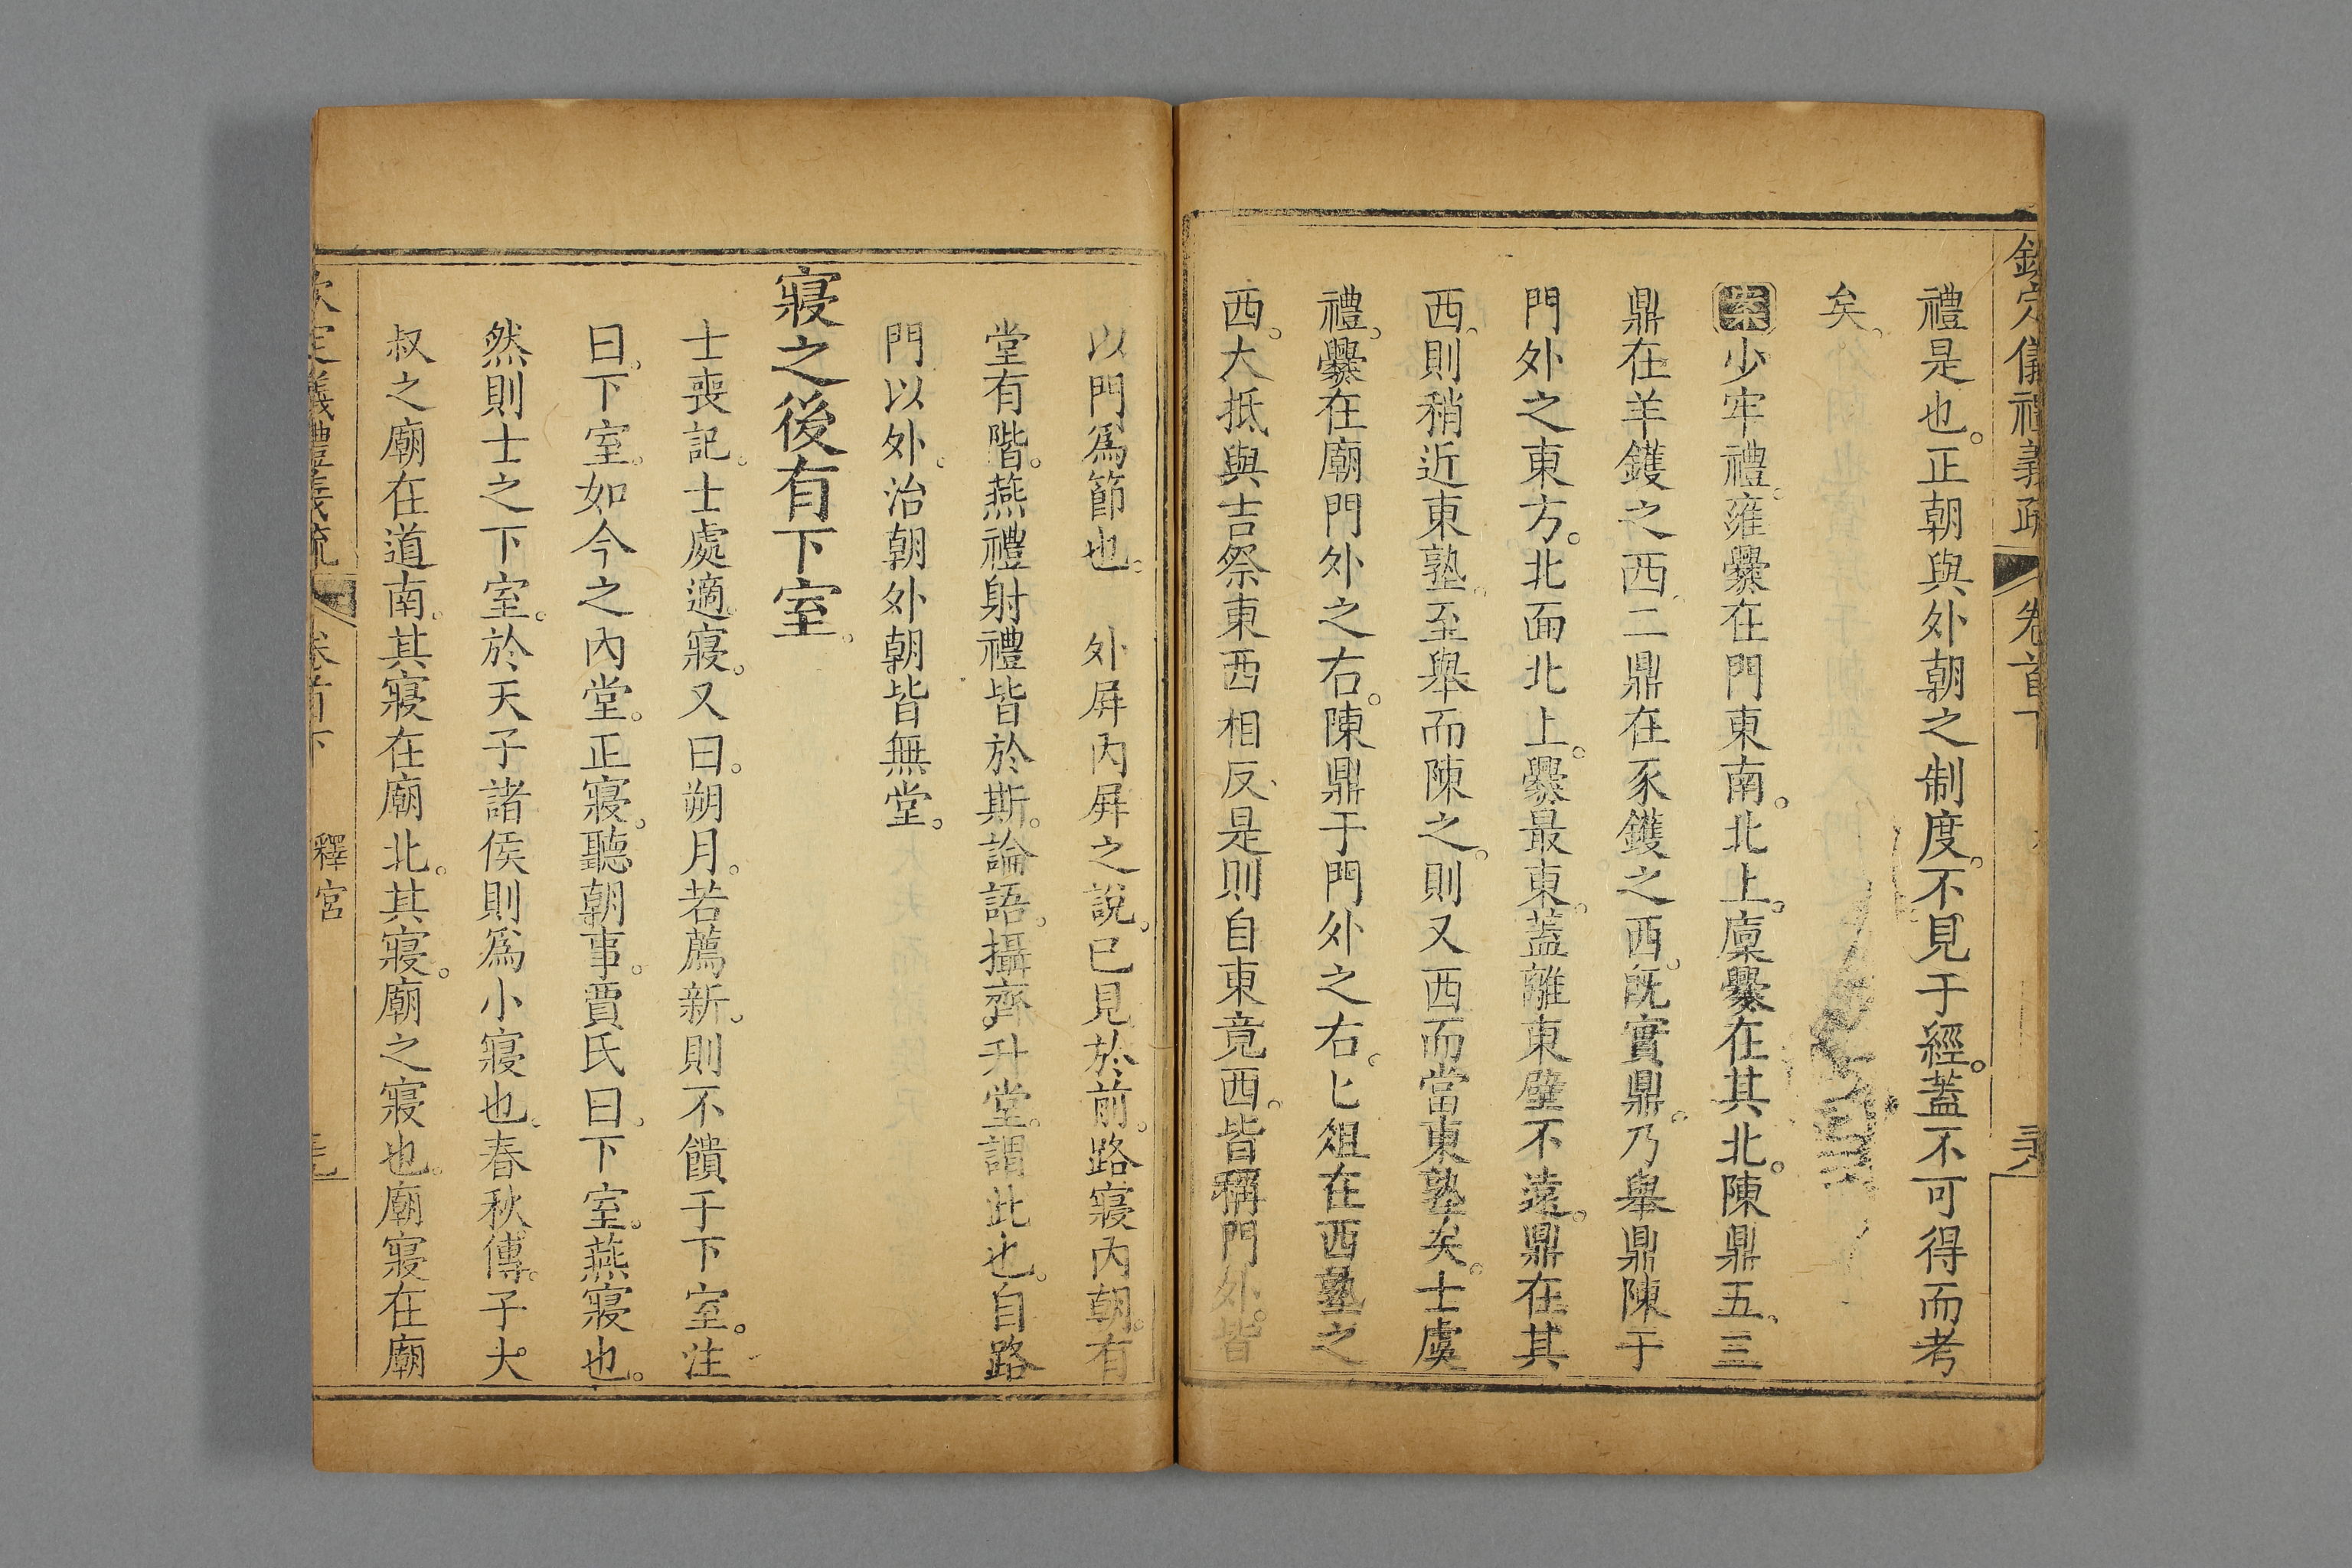 欽定儀禮義疏 卷首下
禮是也。正朝與外朝之制度。不見于經。蓋不可得而考
矣。
案少牢禮。雍爨在門東南。北上。廩爨在其北。陳鼎五。三
鼎在羊鑊之西。二鼎在豕鑊之西。既實鼎。乃舉鼎陳于
門外之東方。北面北上。爨最東。蓋離東壁不遠。鼎在其
西。則稍近東塾。至舉而陳之。則又西而當東塾矣。士虞
禮。爨在廟門外之右。陳鼎于門外之右。匕俎在西塾之
西。大抵與吉祭東西相反。是則自東竟西。皆稱門外。皆
以門爲節也。 外屏內屏之說。已見於前。路寢內朝。有
堂有階。燕禮射禮皆於斯。論語。攝齊。升堂。謂此也。自路
門以外。治朝外朝皆無堂。
寢之後有下室。
士喪記。士處適寢。又曰。朔月。若薦新。則不饋于下室。注
曰。下室。如今之內堂。正寢。聽朝事。賈氏曰。下室。燕寢也。
然則士之下室。於天子諸侯則爲小寢也。春秋傳。子大
叔之廟在道南。其寢在廟北。其寢。廟之寢也。廟寢在廟
欽定儀禮義疏 卷首下 釋宮